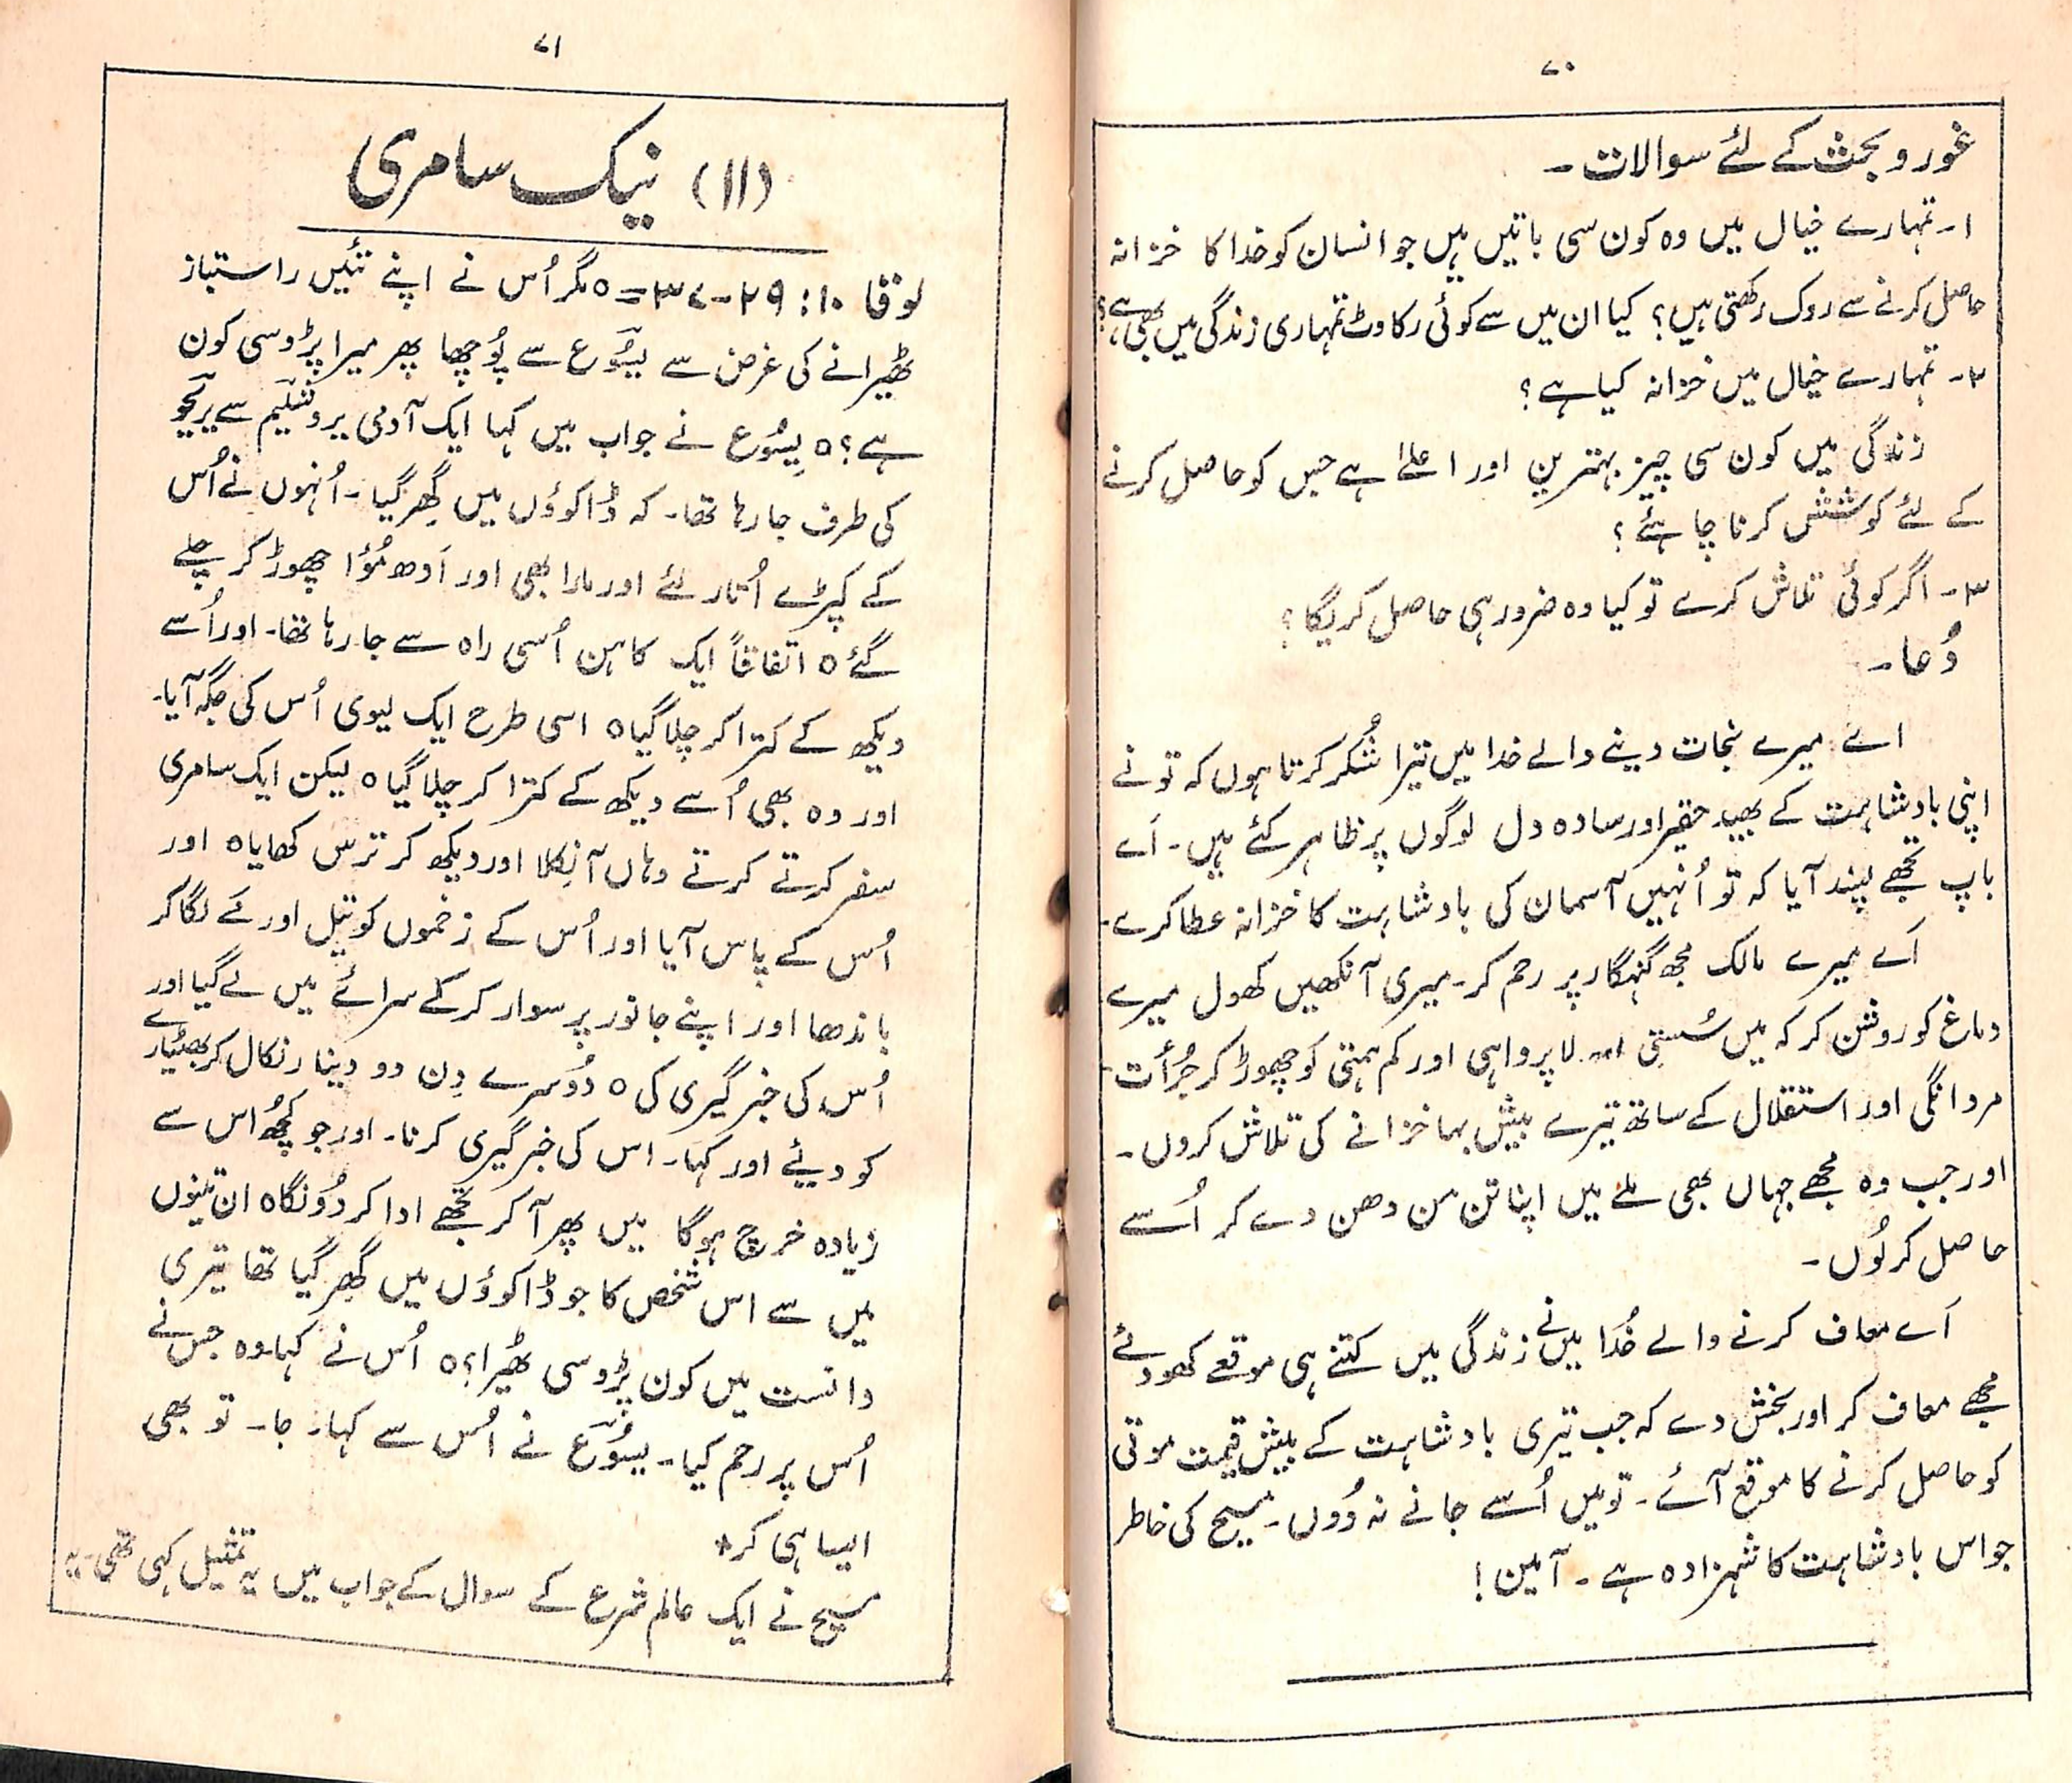 ۷۰
غور و بحث کے لئے سوالات ۔
۱۔ تمہارے خیال میں وہ کون سی باتیں ہیں جو انسان کو خدا کا خزانہ
حاصل کرنے سے روک رکھتی ہیں؟ کیا ان میں سے کوئی رکاوٹ تمہاری زندگی میں بھی ہے؟
۲۔ تمہارے خیال میں خزانہ کیا ہے؟
زندگی میں کون سی چیز بہترین اور اعلےٰ ہے جس کو حاصل کرنے
کے لئے کوشش کرنا چاہئے؟
۳۔ اگر کوئی تلاش کرے تو کیا وہ ضرور ہی حاصل کریگا؟
دُعا ۔
اے میرے نجات دینے والے خدا میں تیرا شُکر کرتا ہوں کہ تو نے
اپنی بادشاہت کے بھید حقیر اور سادہ دل لوگوں پر ظاہر کئے ہیں۔ اَے
باپ تجھے پسند آیا کہ تو اُنہیں آسمان کی بادشاہت کا خزانہ عطا کرے۔
اَے میرے مالک مجھ گنہگار پر رحم کر۔ میری آنکھیں کھول میرے
دماغ کو روشن کر کہ میں سُستی لاپرواہی اور کم ہمتی کو چھوڑ کر جُرأت۔
مردانگی اور استقلال کے ساتھ تیرے بیش بہا خزانے کی تلاش کروں۔
اور جب وہ مجھے جہاں بھی ملے میں اپنا تن من دھن دے کر اُسے
حاصل کر لُوں۔
اَے معاف کرنے والے خُدا میں نے زندگی میں کتنے ہی موقعے کھو دئے
مجھے معاف کر اور بخش دے کہ جب تیری بادشاہت کے بیش قیمت موتی
کو حاصل کرنے کا موقع آئے۔ تو میں اُسے جانے نہ دُوں۔ مسیح کی خاطر
جو اس بادشاہت کا شہزادہ ہے ۔ آمین!
۷۱
(۱۱) نیک سامری
لوقا ۱۰: ۲۹-۳۷=٥ مگر اُس نے اپنے تئیں راستباز
ٹھیرانے کی غرض سے یسُوع سے پُوچھا پھر میرا پڑوسی کون
ہے؟ ٥ یِسُوع نے جواب میں کہا ایک آدمی یروشلیم سے یریحو
کی طرف جا رہا تھا۔ کہ ڈاکوؤں میں گِھر گیا۔ اُنہوں نے اُس
کے کپڑے اُتار لئے اور مارا بھی اور اَدھ مُؤا چھوڑ کر چلے
گئے ٥ اتفاقاً ایک کاہن اُسی راہ سے جا رہا تھا۔ اور اُسے
دیکھ کے کترا کر چلا گیا ٥ اسی طرح ایک لیوی اُس کی جگہ آیا۔
اور وہ بھی اُسے دیکھ کے کترا کر چلا گیا ٥ لیکن ایک سامری
سفر کرتے کرتے وہاں آ نِکلا اور دیکھ کر ترس کھایا ٥ اور
اُس کے پاس آیا اور اُس کے زخموں کو تیل اور مَے لگا کر
باندھا اور اپنے جانور پر سوار کر کے سرائے میں لے گیا اور
اُس کی خبر گیری کی ٥ دُوسرے دِن دو دینار نکال کر بھٹیارے
کو دیئے اور کہا۔ اس کی خبر گیری کرنا۔ اور جو کچُھ اس سے
زیادہ خرچ ہوگا میں پھر آ کر تجھے ادا کر دُونگا ٥ ان تینوں
میں سے اس شخص کا جو ڈاکوؤں میں گِھر گیا تھا تیری
دانست میں کون پڑوسی ٹھیرا؟ ٥ اُس نے کہا وہ جس نے
اُس پر رحم کیا۔ یسُوع نے اُس سے کہا۔ جا۔ تو بھی
ایسا ہی کر*
مسیح نے ایک عالم شرع کے سوال کے جواب میں یہ تمثیل کہی تھی۔ یہ